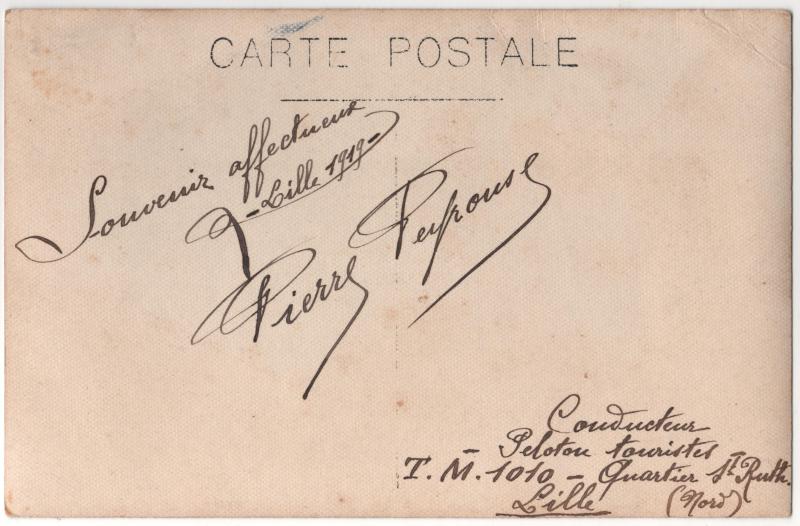 CARTE POSTALE
Souvenir affectueux
- Lille 1919 -
Pierre Peyrouse
Conducteur
- Peloton touristes -
T. M. 1010 - Quartier St Ruth.
Lille (Nord)